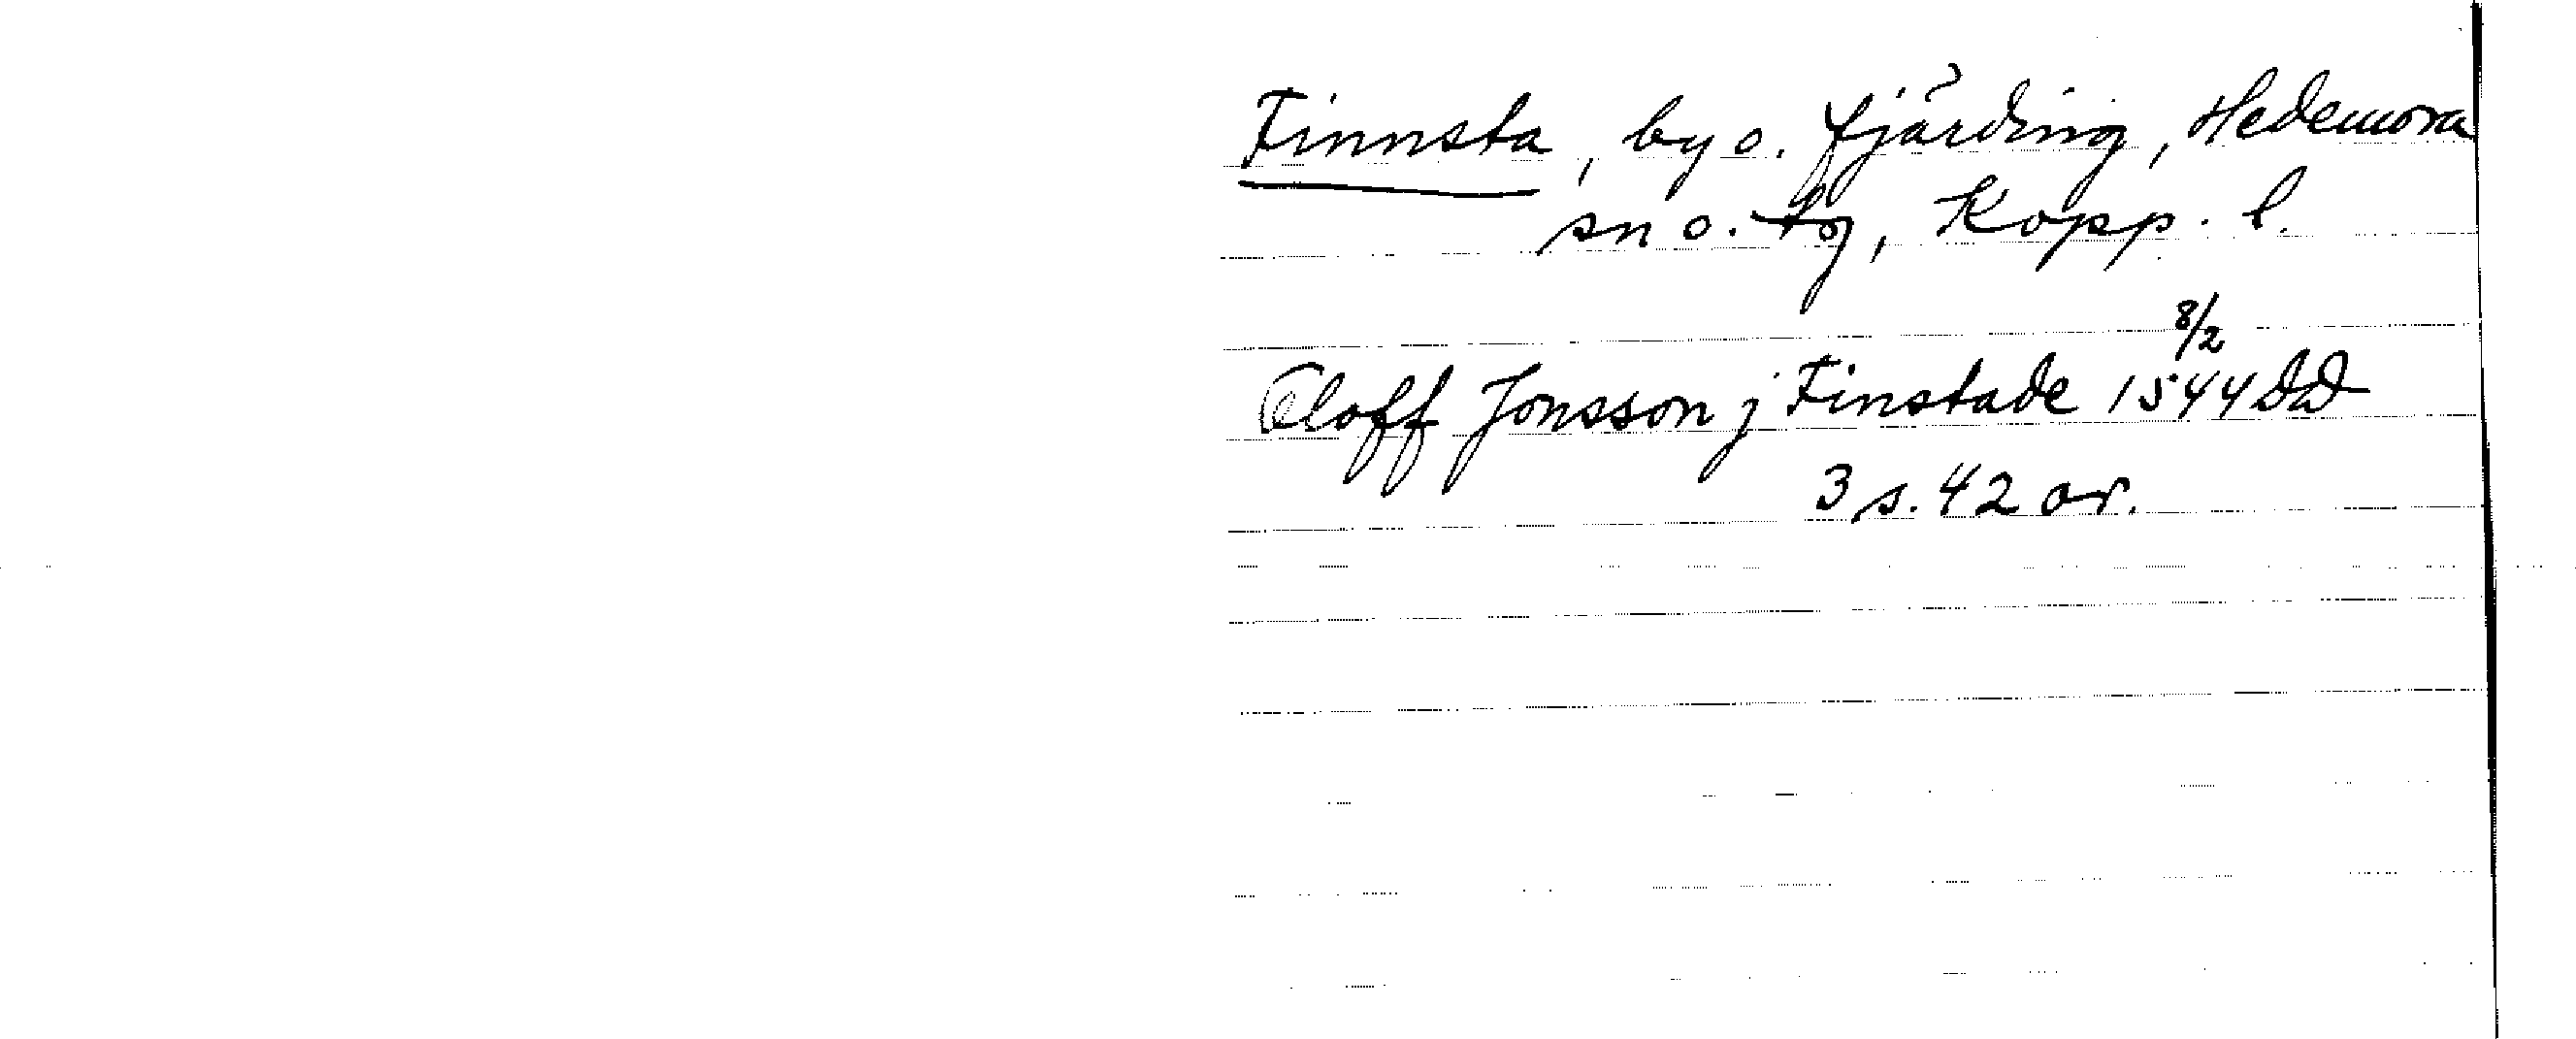 Finnsta, by o. fjärding, Hedemora
sn o. tg, Kopp. l.
Oloff Jonsson j Finstade 1544 8/2 DD
3 s. 42 or.